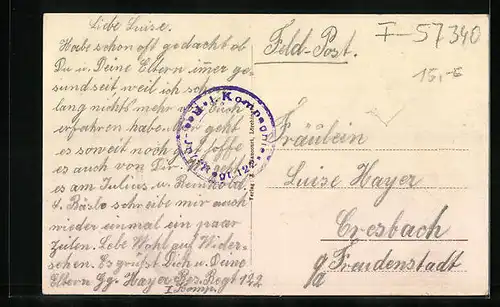 Liebe Luise.
Habe schon oft gedacht ob
Du u. Deine Eltern imer ge-
sund seit weil ich schon
lang nichts mehr von Euch
erfahren habe. Mir geht
es soweit noch gut hoffe
es auch von Dir. Wie geht
es am Julius u. Reinhold
u. Bäsle schreibe mir auch
wieder einmal ein paar
Zeilen. Lebe Wohl auf Wider-
sehen. Es grüßt Dich u. Deine
Eltern Gg. Hayer Res. Regt 122
I Komp.
Feld-Post.
I-57340
15,-
I. Kompagnie
Fräulein
Luise Hayer
Cresbach
Freudenstadt